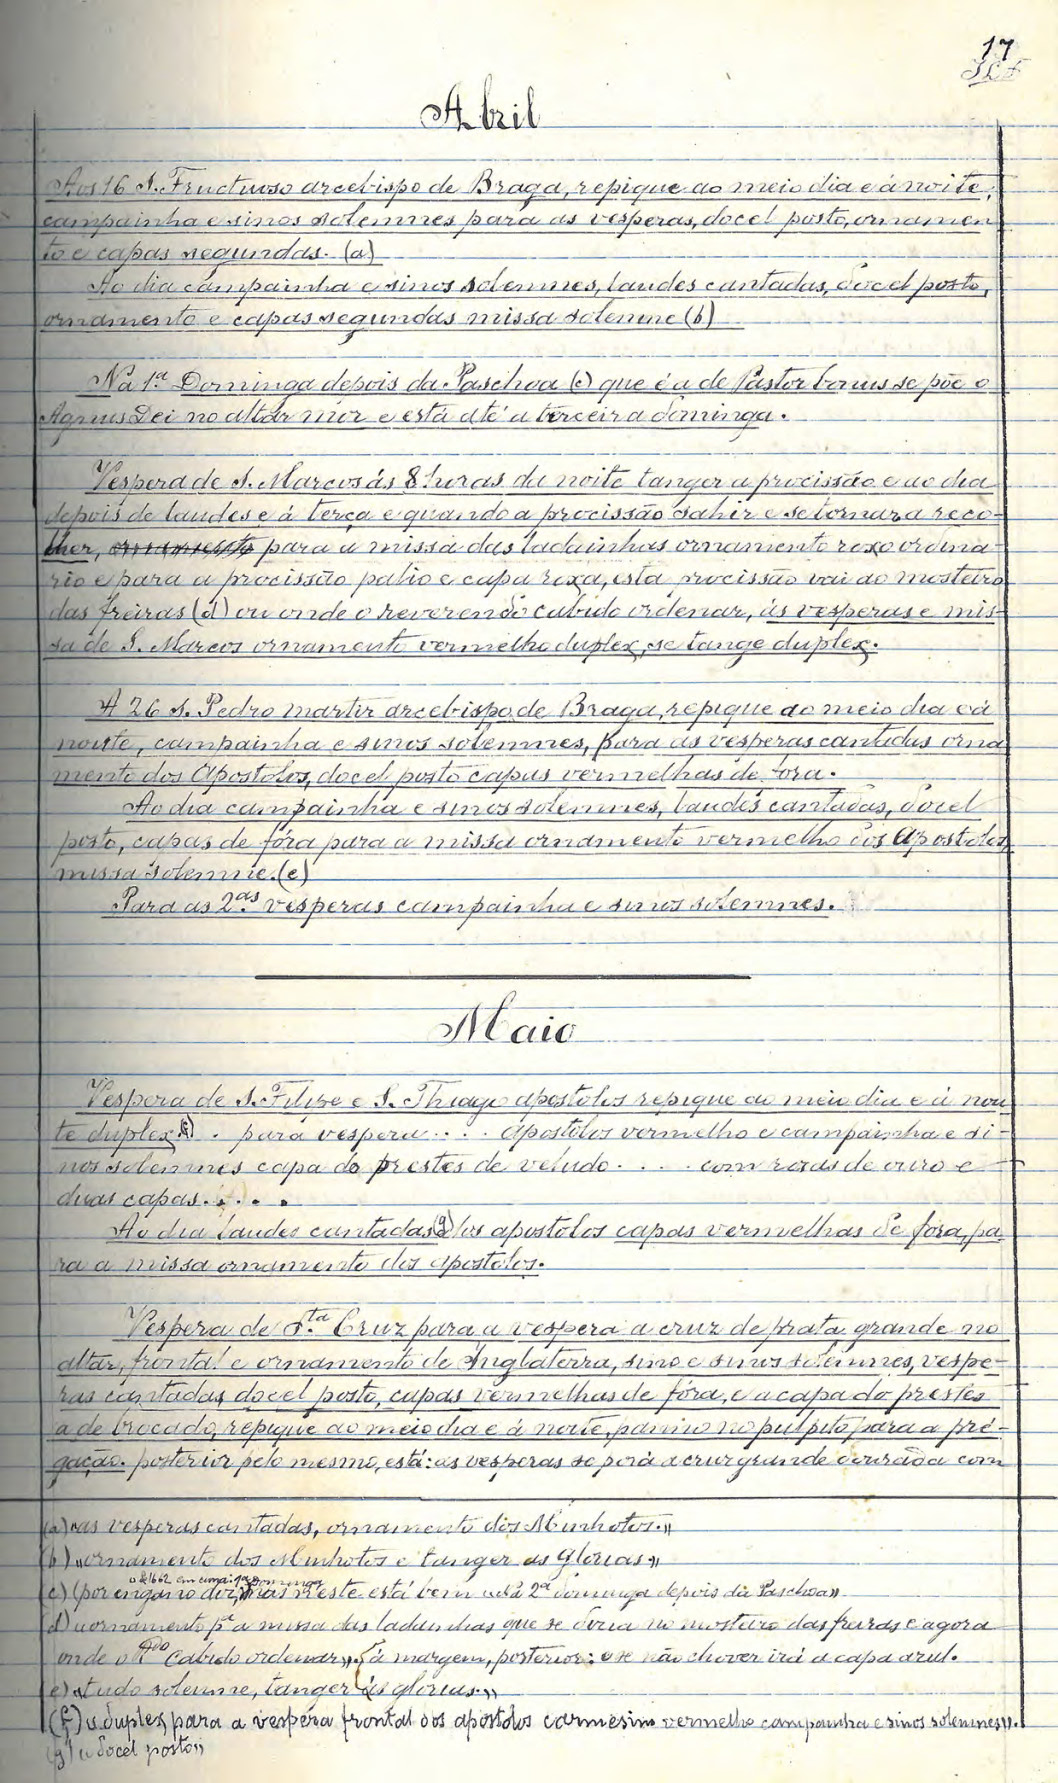 17
Abril
Aos 16 S. Fructuoso arcebispo de Braga, repique ao meio dia e á noite,
campainha e sinos solemnes para as vesperas, docel posto, ornamen
to e capas segundas. (a)
Ao dia campainha e sinos solemnes, laudes cantadas, docel posto,
ornamento e capas segundas missa solemne (b)
Na 1.ª Dominga depois da Paschoa (c) que é a de Pastor bonus se põe o
Agnus Dei no altar mór e está até a terceira dominga.
Vespera de S. Marcos ás 8 horas da noite tanger a procissão e ao dia
depois de laudes e á terça e quando a procissão sahir e se tornar a reco-
lher, ornamento para a missa das ladainhas ornamento roxo ordina
rio e para a procissão palio e capa roxa, esta procissão vai ao mosteiro
das freiras (d) ou onde o reverendo cabido ordenar, ás vesperas e mis-
sa de S. Marcos ornamento vermelho duplex, se tange duplex.
A 26 S. Pedro martir arcebispo de Braga, repique ao meio dia e á
noite, campainha e sinos solemnes, para as vesperas cantadas orna
mento dos Apostolos, docel posto capas vermelhas de fora.
Ao dia campainha e sinos solemnes, laudes cantadas, docel
posto, capas de fóra para a missa ornamento vermelho dos Apostolos,
missa solemne. (e)
Para as 2.as vesperas campainha e sinos solemnes.
Maio
Vespera de S. Filipe e S. Thiago apostolos repique ao meio dia e á noi
te duplex (f) . para vespera . . . . apostolos vermelho e campainha e si-
nos solemnes capa do prestes de veludo . . . . com rodas de ouro e
duas capas. . . .
Ao dia laudes cantadas (g) dos apostolos capas vermelhas de fóra, pa
ra a missa ornamento dos apostolos.
Vespera de S.ta Cruz para a vespera a cruz de prata grande no
altar, frontal e ornamento de Inglaterra, sino e sinos solemnes, vespe-
ras cantadas, docel posto, capas vermelhas de fóra, e a capa do prestes
a de brocado, repique ao meio dia e á noite, panno no pulpito para a pré-
gação. posterior pelo mesmo, está: as vesperas se porá a cruz grande dourada com
(a) «as vesperas cantadas, ornamento dos Minhotos.»
(b) «ornamento dos Minhotos e tanger as glorias»
o de 1662 em cima: 1ª dominga
(c) (por engano diz, mas este está bem «na 2ª dominga depois da Paschoa».
(d) «ornamento pª a missa das ladainhas que se dizia no mosteiro das freiras e agora
onde o Rdo Cabido ordenar». (á margem, posterior: e se não chover irá a capa azul.
(e) «tudo solemne, tanger ás glorias.»
(f) «duplex, para a vespera frontal dos apostolos carmesim vermelho campainha e sinos solemnes».
(g) «docel posto»